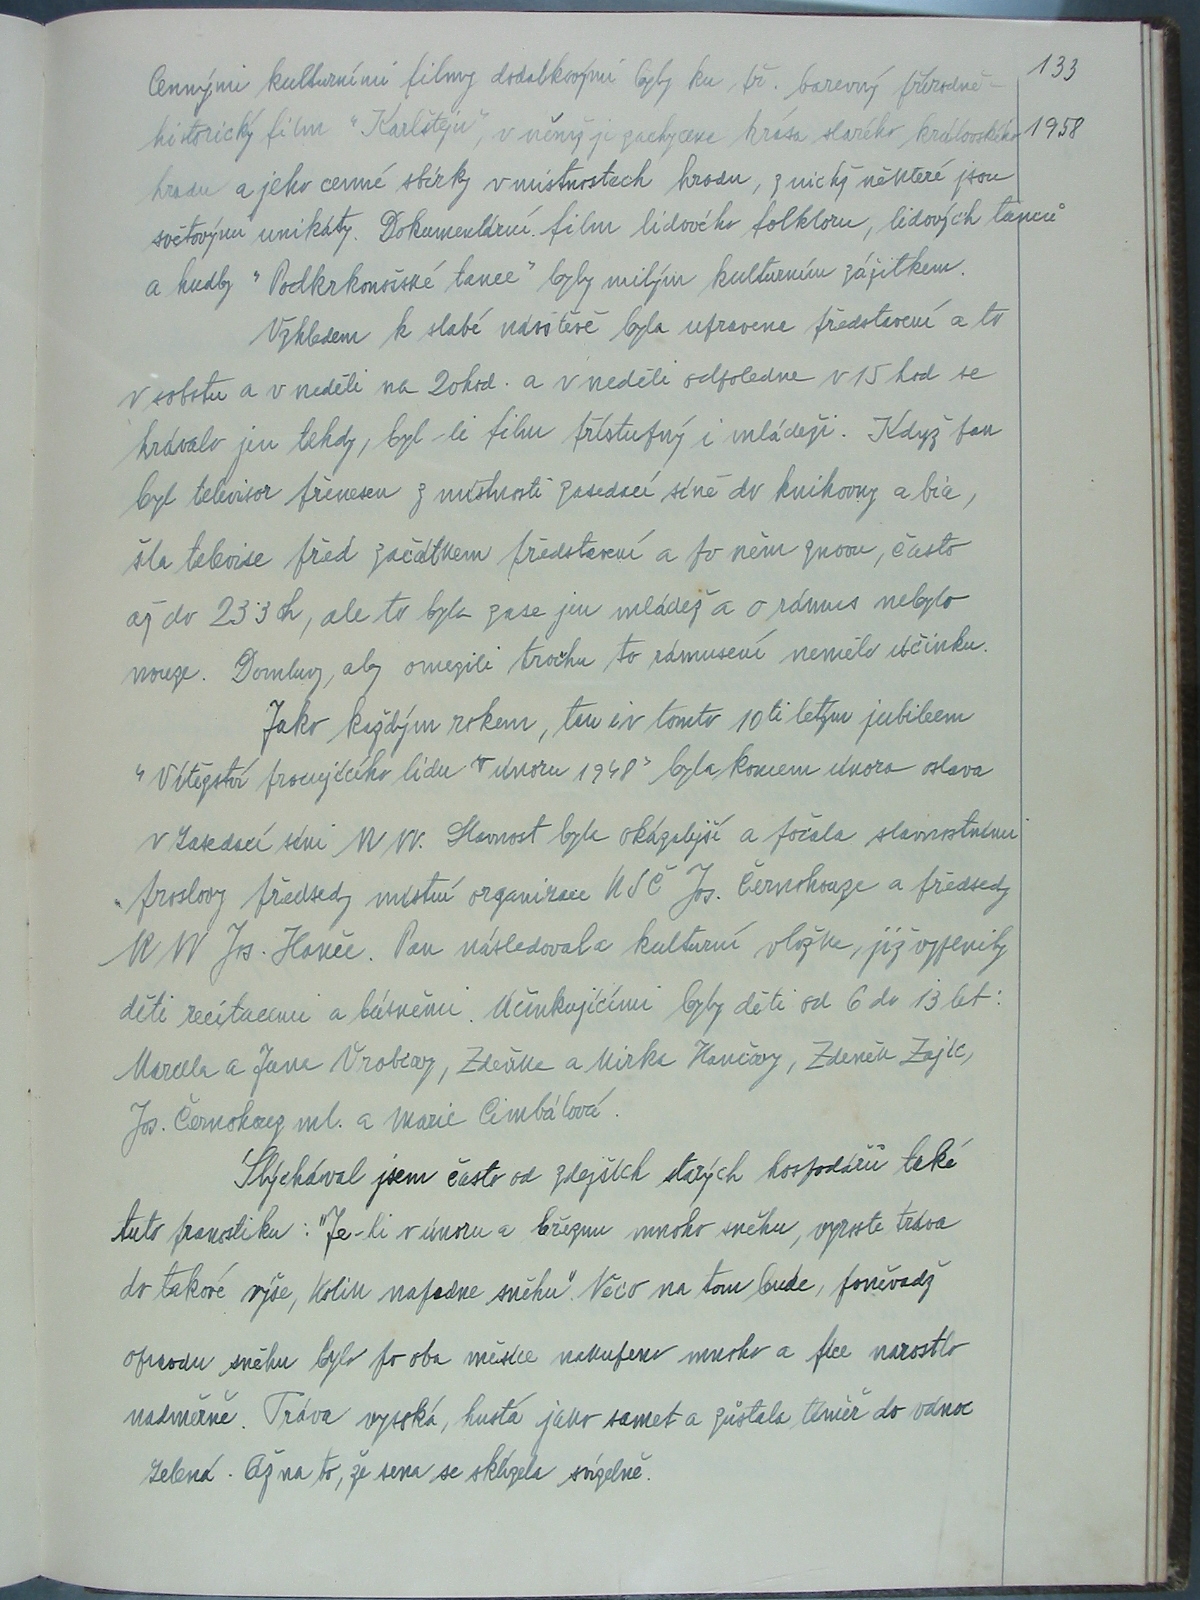 133
Cennými kulturními filmy dodatkovými byly ku př. barevný přírodně-
historický film "Karlštejn", v němž je zachycena krása starého královského
1958
hradu a jeho cenné sbírky v místnostech hradu, z nichž některé jsou
světovými unikáty. Dokumentární film lidového folkloru, lidových tanců
a hudby "Podkrkonošské tance" byly milým kulturním zážitkem.
Vzhledem k slabé návštěvě byla upravena představení a to
v sobotu a v neděli na 20 hod. a v neděli odpoledne v 15 hod se
hrávalo jen tehdy, byl-li film přístupný i mládeži. Když pan
byl televisor přenesen z místnosti zasedací síně do knihovny a bia,
šla televise před začátkem představení a po něm znovu, často
až do 23 3 h, ale to byla zase jen mládež a o rámus nebylo
nouze. Domluvy, aby omezili trochu to rámusení nemělo účinku.
Jako každým rokem, tak i v tomto 10ti letým jubileem
"Vítězství pracujícího lidu v únoru 1948" byla koncem února oslava
v zasedací síni MNV. Slavnost byla okázalejší a počala slavnostními
proslovy předsedy místní organizace KSČ Jos. Černohouze a předsedy
MNV Jos. Hanče. Pak následovala kulturní vložka, již vyplnily
děti recitacemi a básněmi. Účinkujícími byly děti od 6 do 13 let:
Marcela a Jana Vrobcovy, Zdeňka a Mirka Hančovy, Zdeněk Zajíc,
Jos. Černohouz ml. a Marie Cimbálová.
Slýchával jsem často od zdejších starých hospodářů také
tuto pranostiku: "Je-li v únoru a březnu mnoho sněhu, vyroste tráva
do takové výše, kolik napadne sněhu". Něco na tom bude, poněvadž
opravdu sněhu bylo po oba měsíce nakupeno mnoho a píce narostlo
nadměrně. Tráva vysoká, hustá jako samet a zůstala téměř do vánoc
zelená. Až na to, že sena se sklízela svízelně.